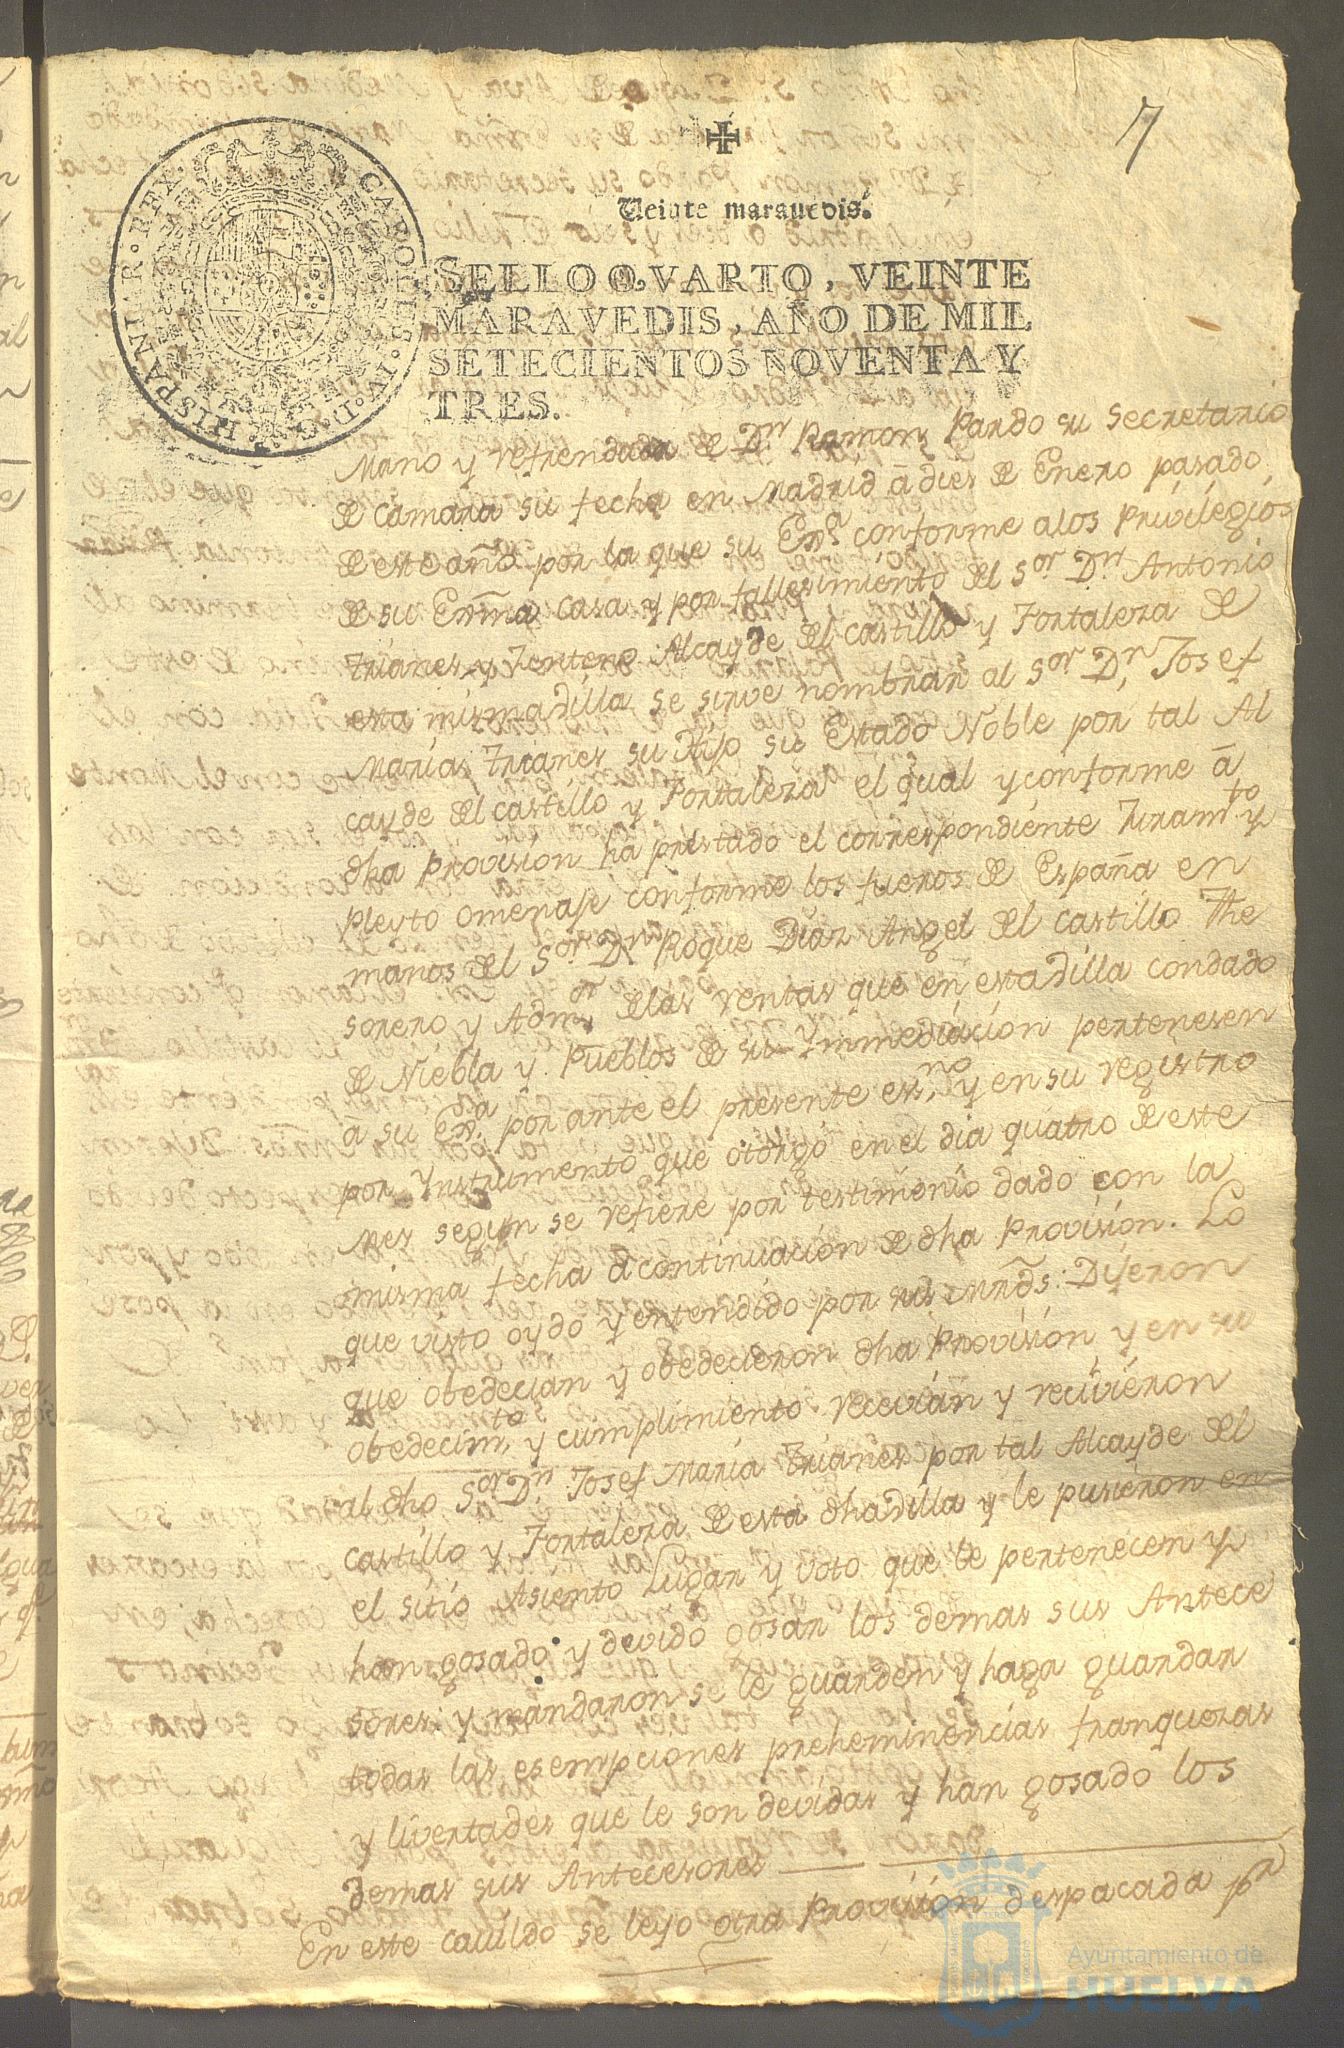 7
Veinte marauedis.
SELLO QVARTO, VEINTE
MARAVEDIS, AÑO DE MIL
SETECIENTOS NOVENTA Y
TRES.
CAROLUS IV D G HISPANIAR REX
Mano y refrendada de Dn Ramon Pardo su Secretario
de Camara su fecha en Madrid â dies de Enero pasado
de este año por la que su Exª conforme alos Privilegios
de su Exma casa y por fallesimiento del Sor Dn Antonio
Trianes y Zenteno Alcayde del Castillo y Fortaleza de
esta misma Villa se sirve nombrar al Sor Dn Josef
Marías Trianes su Hijo su Estado Noble por tal Al
cayde del castillo y Fortaleza el qual y conforme â
dha Provision ha prestado el correspondiente Juramto y
Pleyto omenaje conforme los fueros de España en
manos del Sor Dn Roque Diaz Angel del Castillo The
sorero y Admor delas rentas que en esta Villa condado
de Niebla y Pueblos de su Ynmediacion pertenesen
a su Exª por ante el presente esno y en su registro
por Ynstrumento que otorgó en el dia quatro de este
Mes segun se refiere por testimonio dado con la
misma fecha a continuacion de dha Provision. Lo
que visto oydo y entendido por sus mrds: Dijeron
que obedecian y obedecieron dha Provision y en su
obedecimto y cumplimiento recivian y recivieron
al dho Sor Dn Josef María Trianes por tal Alcayde del
castillo y Fortaleza de esta dha Villa y le pusieron en
el sitio Asiento Lugar y voto que le pertenecen y
han gosado y devido gosar los demas sus Antece
sores: y mandaron se le guarden y haga guardar
todas las esempciones preheminencias franquezas
y livertades que le son devidas y han gosado los
demas sus Antecesores
En este cavildo se leyo otra Provisión despacada pr
Ayuntamiento de
HUELVA